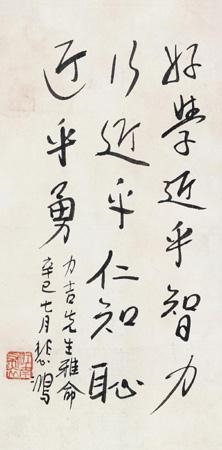 好學近乎智力
行近乎仁知耻
近乎勇
力吉先生雅命
辛巳七月悲鴻